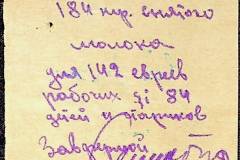 184 лир. снятого
молока
для 142 евреев
рабочих и 84
детей и стариков
Завфермой